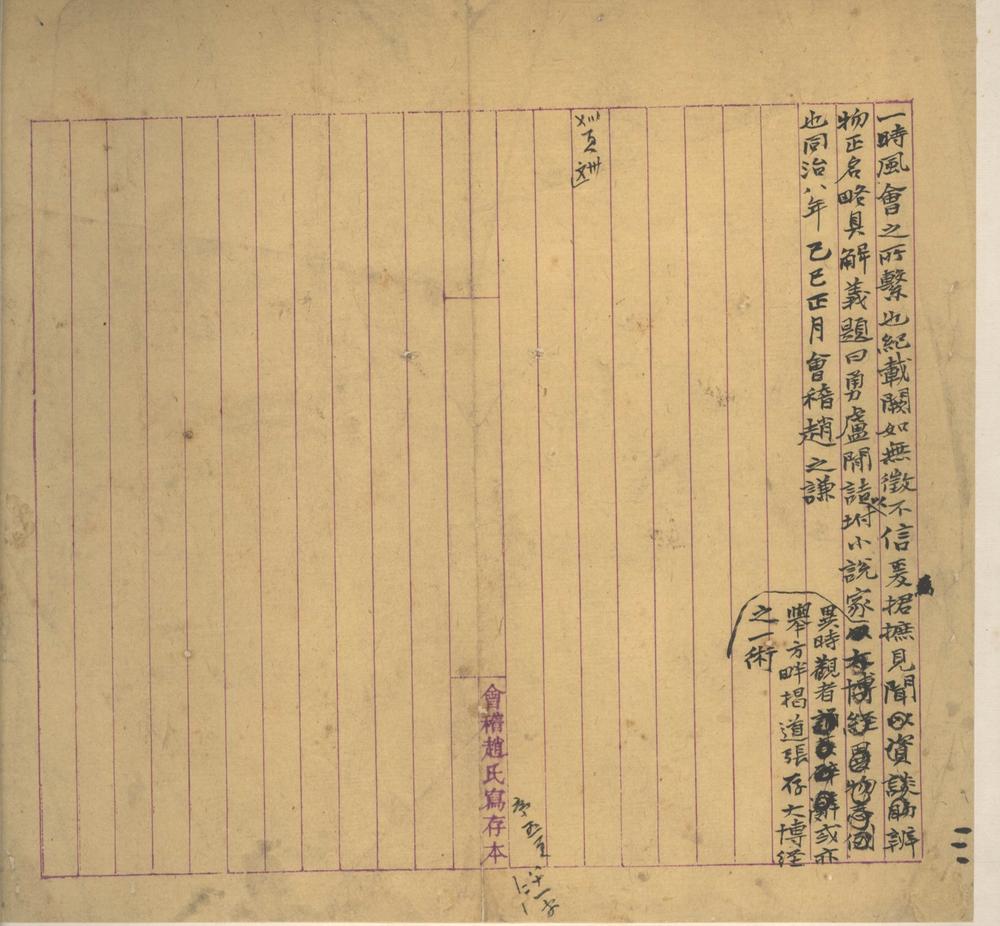 一時風會之所繫也紀載闕如無徵不信爰捃摭見聞以資談助辨
物正名略具解義題曰勇盧閒詰以坿小說家
異時觀者或亦
舉方畔揭道張存大博經
之一術
也同治八年己巳正月會稽趙之謙
會稽趙氏寫存本